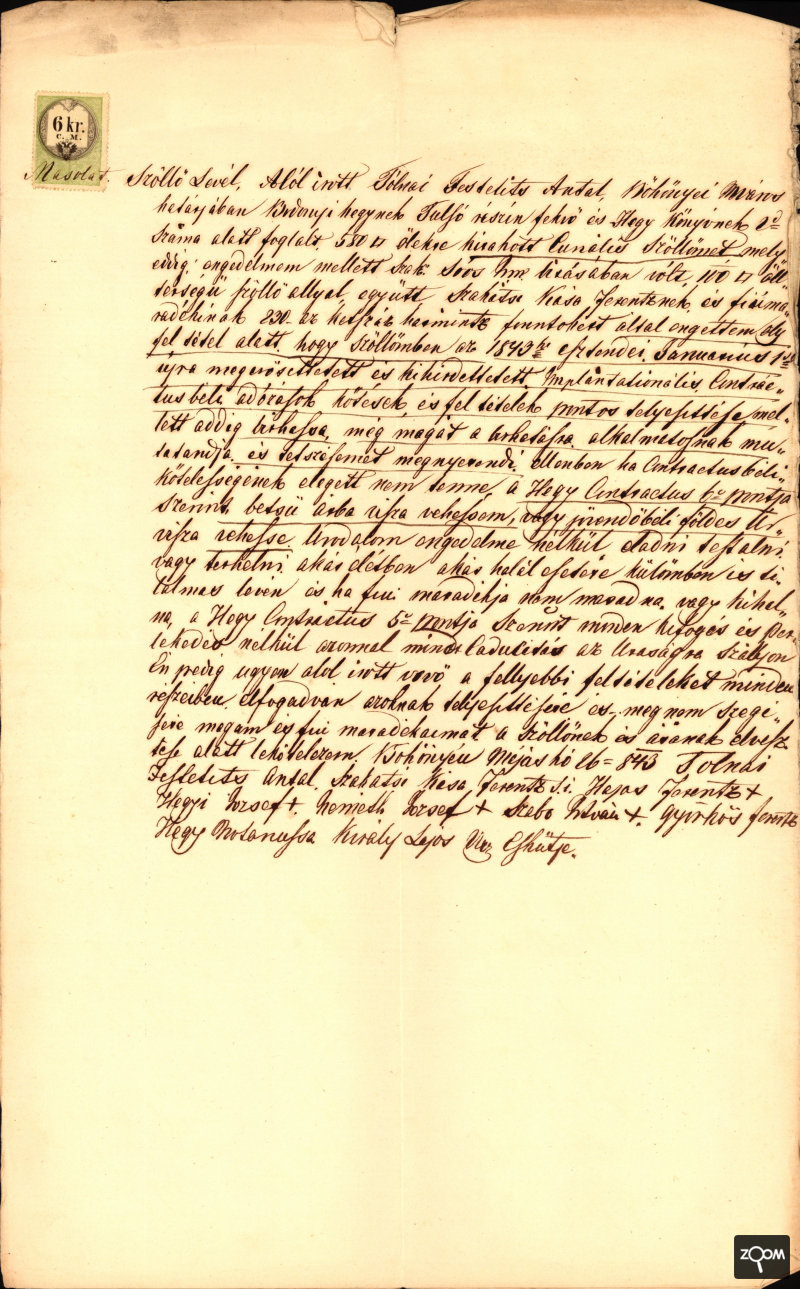 6 kr.
C. M.
Másolat. Szöllő Levél, Alól irott Tólnai Festetits Antal, Böhönyei Mváros
hatarjában Bodonyi hegynek Tulsó részin fekvő és Hegy Könyvnek
száma alatt foglalt 550 □ ölekre kirakott Curiális Szöllőmet mely
eddig engedelmem mellett Szak. Soós birásában volt, 100 □ öll
térségű szöllő allyal, együtt, Szakátsi Kása Ferentznek, és fiu ma„
radékinak 230. az kétszáz harmintz forintokért által engettem oly
fel tétel alatt, hogy Szöllőmben az 1843 esztendei Januarius 1
ujra megerősittetett és kihirdettetett Implántationális Contrac„
tusbeli adózások kötések, és fel tételek pontos telyesittése mel„
lett addig birhassa, még magát a birhatásra alkalmatosnak mu„
tatandja, és tetszésemet megnyerendi, ellenben ha Contractusbéli
kötelességének eleget nem tenne, a Hegy Contractus 6 pontja
szerint betsü árba visza vehessem, vagy jövendőbéli földes Ur„
visza vehesse Urodalom engedelme nélkül eladni testalni
vagy terhelni akár életben akár halál esetére külömben is ti„
lalmas lévén és ha fiui maradékja nem maradna, vagy kihal„
na, a Hegy Contractus 5 pontja Szerint minden kifogás és Per„
lekedés nélkül azonnal mint Caducitás az Uraságra Szályon
Én pedig ugyan alol irott vevő a fellyebbi feltételeket minden
részeiben elfogadván azoknak telyesittésére és meg nem szegé„
sére magam és fiui maradékaimat a Szöllőnek és árának elvesz
tése alatt lekötelezem. Böhönyén Májás hó 26 = 843 Tolnai
Festetits Antal. Szakátsi Kása Ferentz s. i. Hajas Ferentz +
Hegyi Josef +. Nemeth Josef + Szabo István +. Györkös Ferentz
Hegy Király Lajos Esküttje.
ZOOM